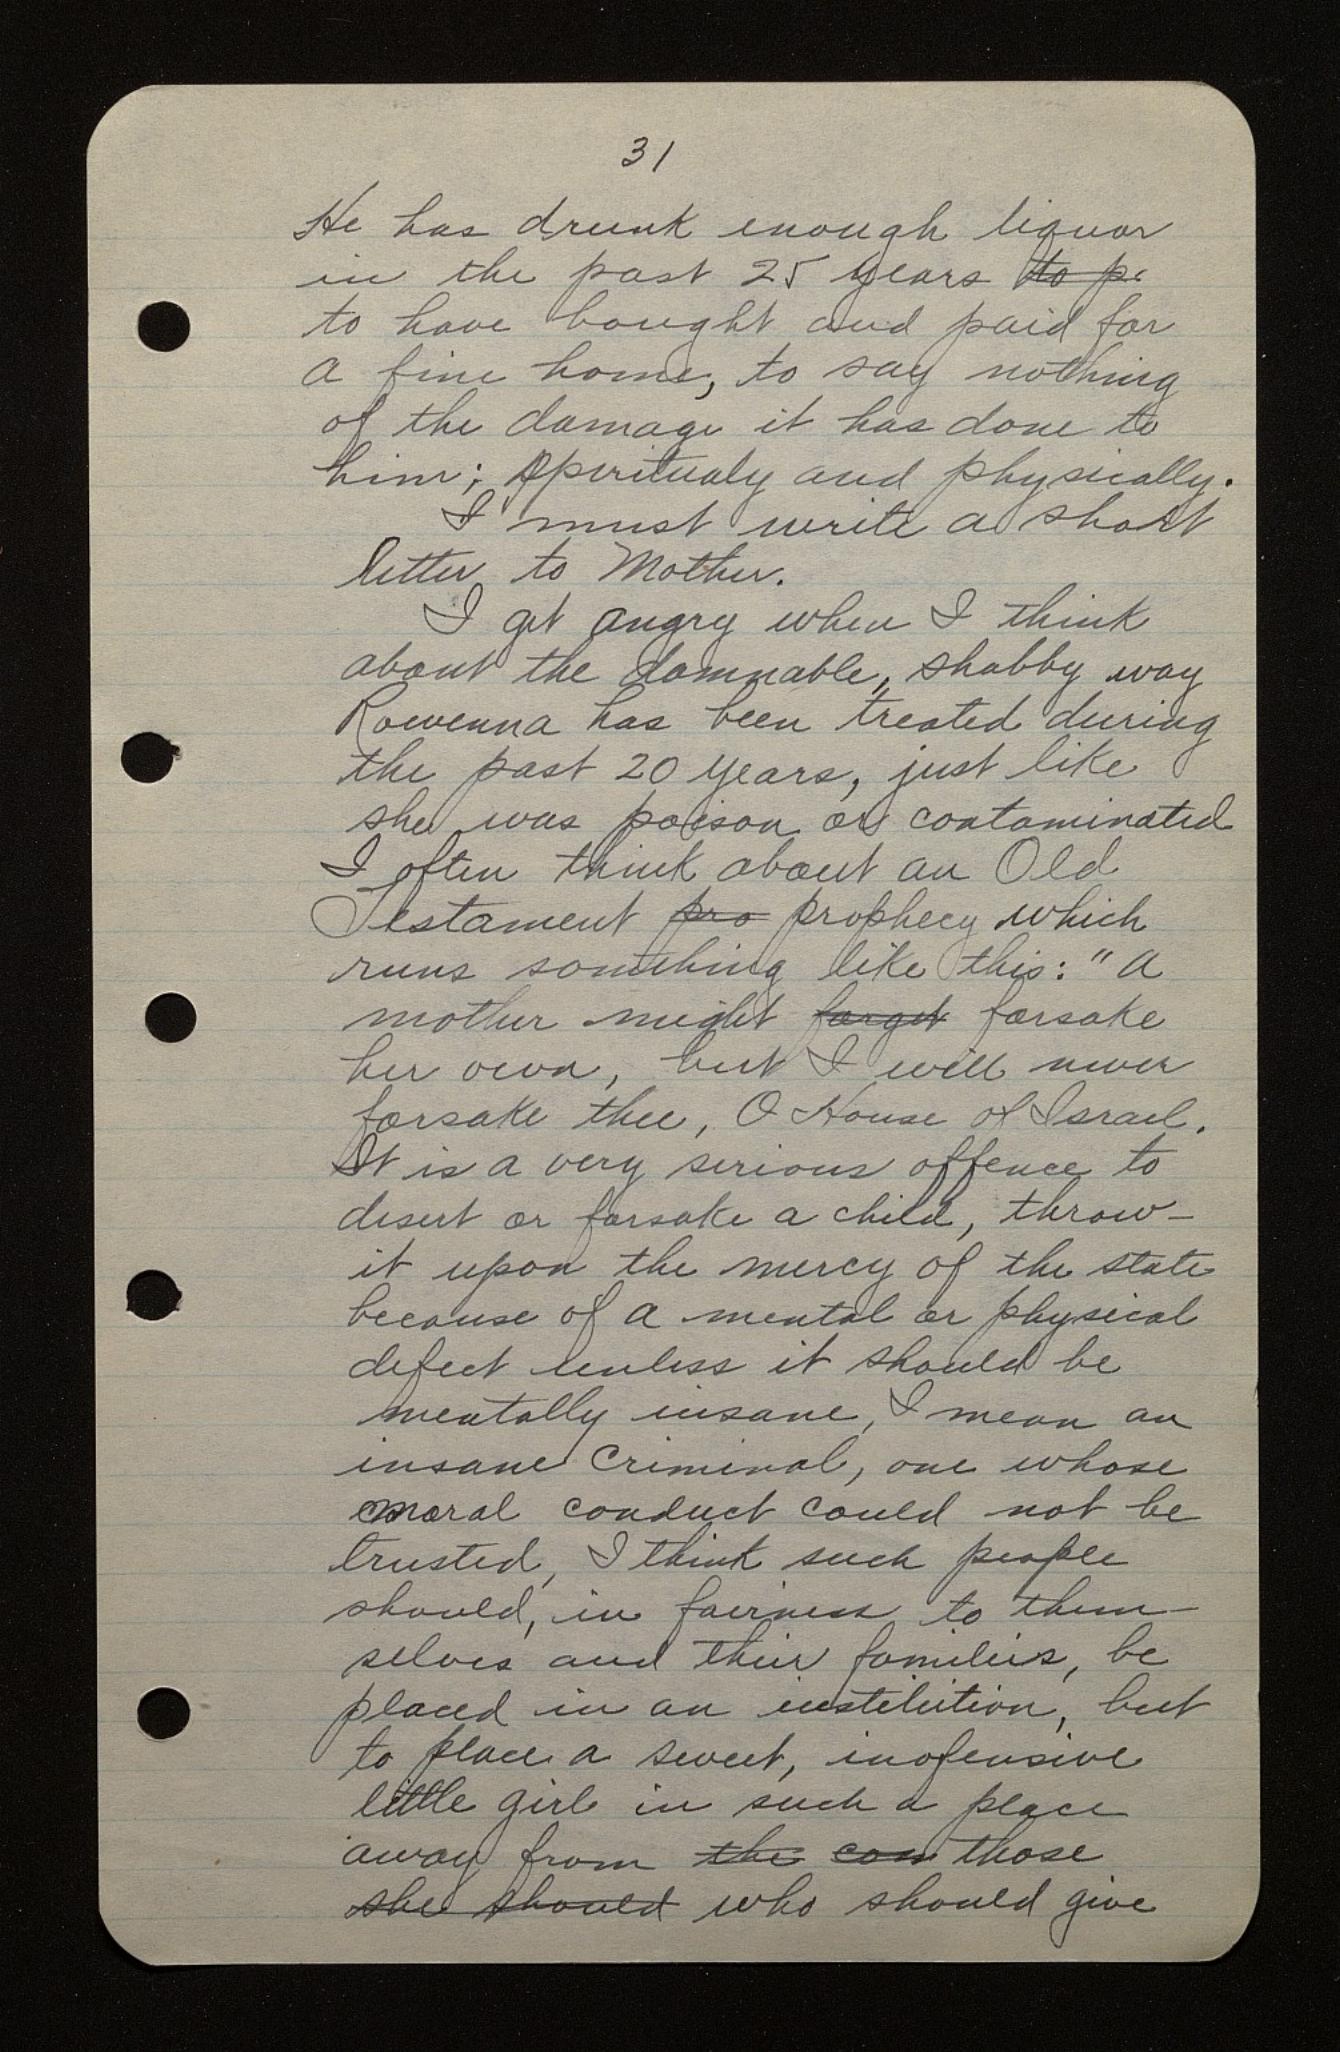 31
He has drunk enough liquor
in the past 25 years to p
to have bought and paid for
a fine home, to say nothing
of the damage it has done to
him; Spiritualy and physically.
I must write a short
letter to Mother.
I get angry when I think
about the damnable, shabby way
Rowenna has been treated during
the past 20 years, just like
she was poison or contaminated
I often think about an Old
Testament pro prophecy which
runs something like this: "A
mother might forget forsake
her own, but I will never
forsake thee, O House of Israel.
It is a very serious offence to
desert or forsake a child, throw-
it upon the mercy of the state
because of a mental or physical
defect unless it should be
mentally insane, I mean an
insane Criminal, one whose
moral conduct could not be
trusted, I think such people
should, in fairness to them-
selves and their families, be
placed in an institution, but
to place a sweet, inofensive
little girl in such a place
away from the con those
she should who should give